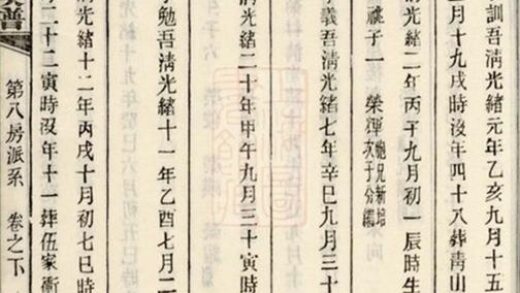 訓吾清光緒元年乙亥九月十五
月十九戌時沒年四十八葬青山
清光緒二年丙子九月初一辰時生
祧子一 榮輝胞兄新培次子分繼
義吾清光緒七年辛巳九月三十
清光緒二十年甲午九月三十寅時
勉吾清光緒十一年乙酉七月二
清光緒十二年丙戌十月初七巳時
二十二寅時沒年十一葬伍家衝
譜
第八房派系 卷之下